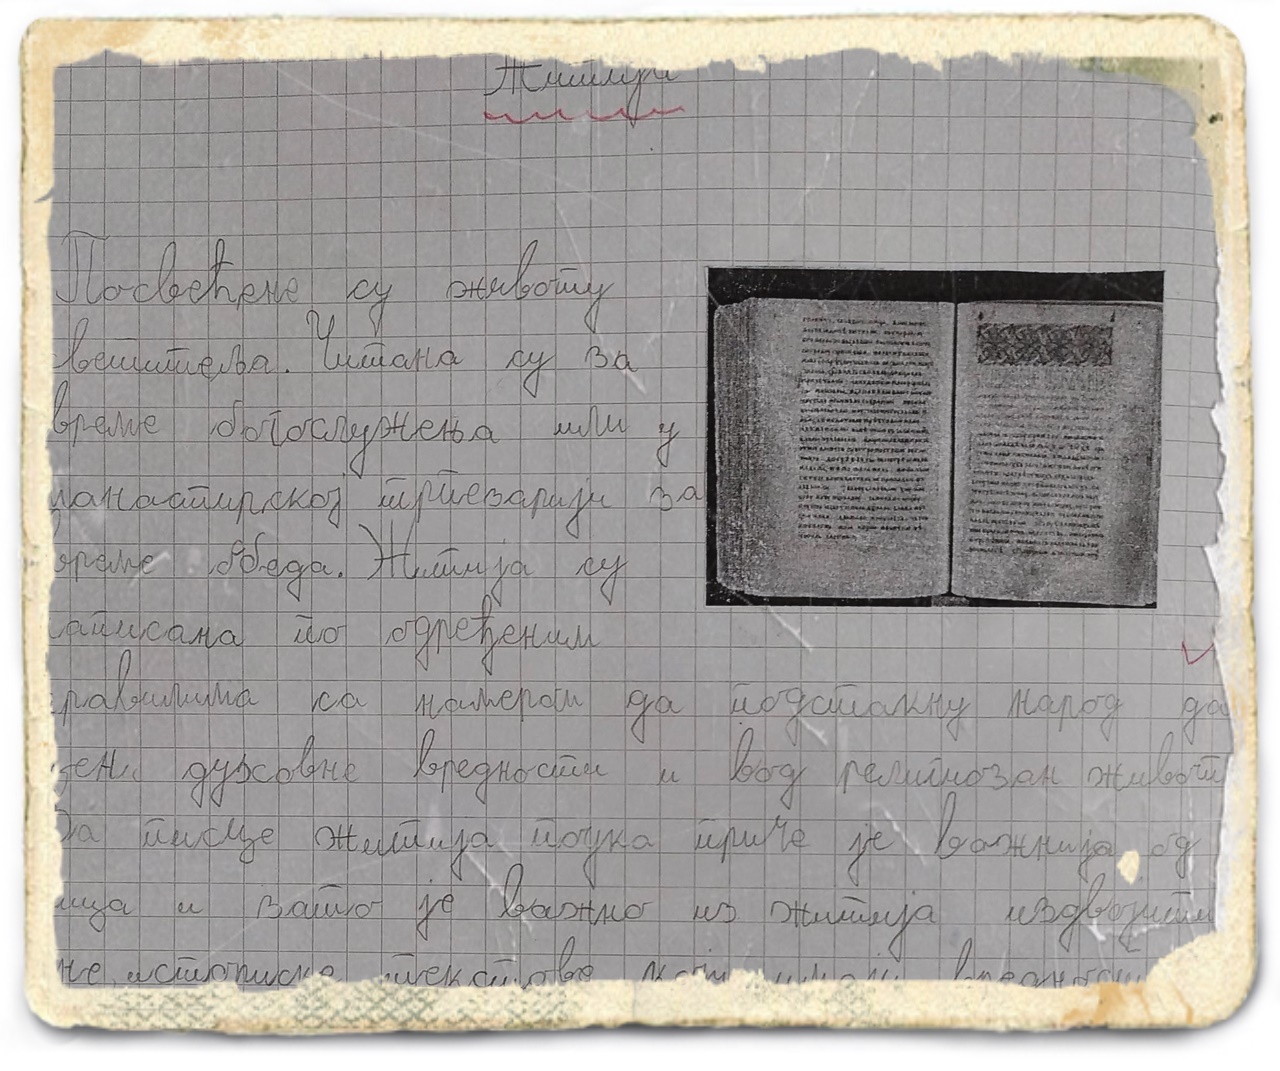 Житија
Посвећене су животу
светитеља. Читана су за
време богослужења или у
манастирској трпезарији за
време обеда. Житија су
написана по одређеним
правилима са намером да подстакну народ да
цени духовне вредности и вод религиозан живот
За писце житија поука приче је важнија од
и зато је важно из житија издвојити
текстове